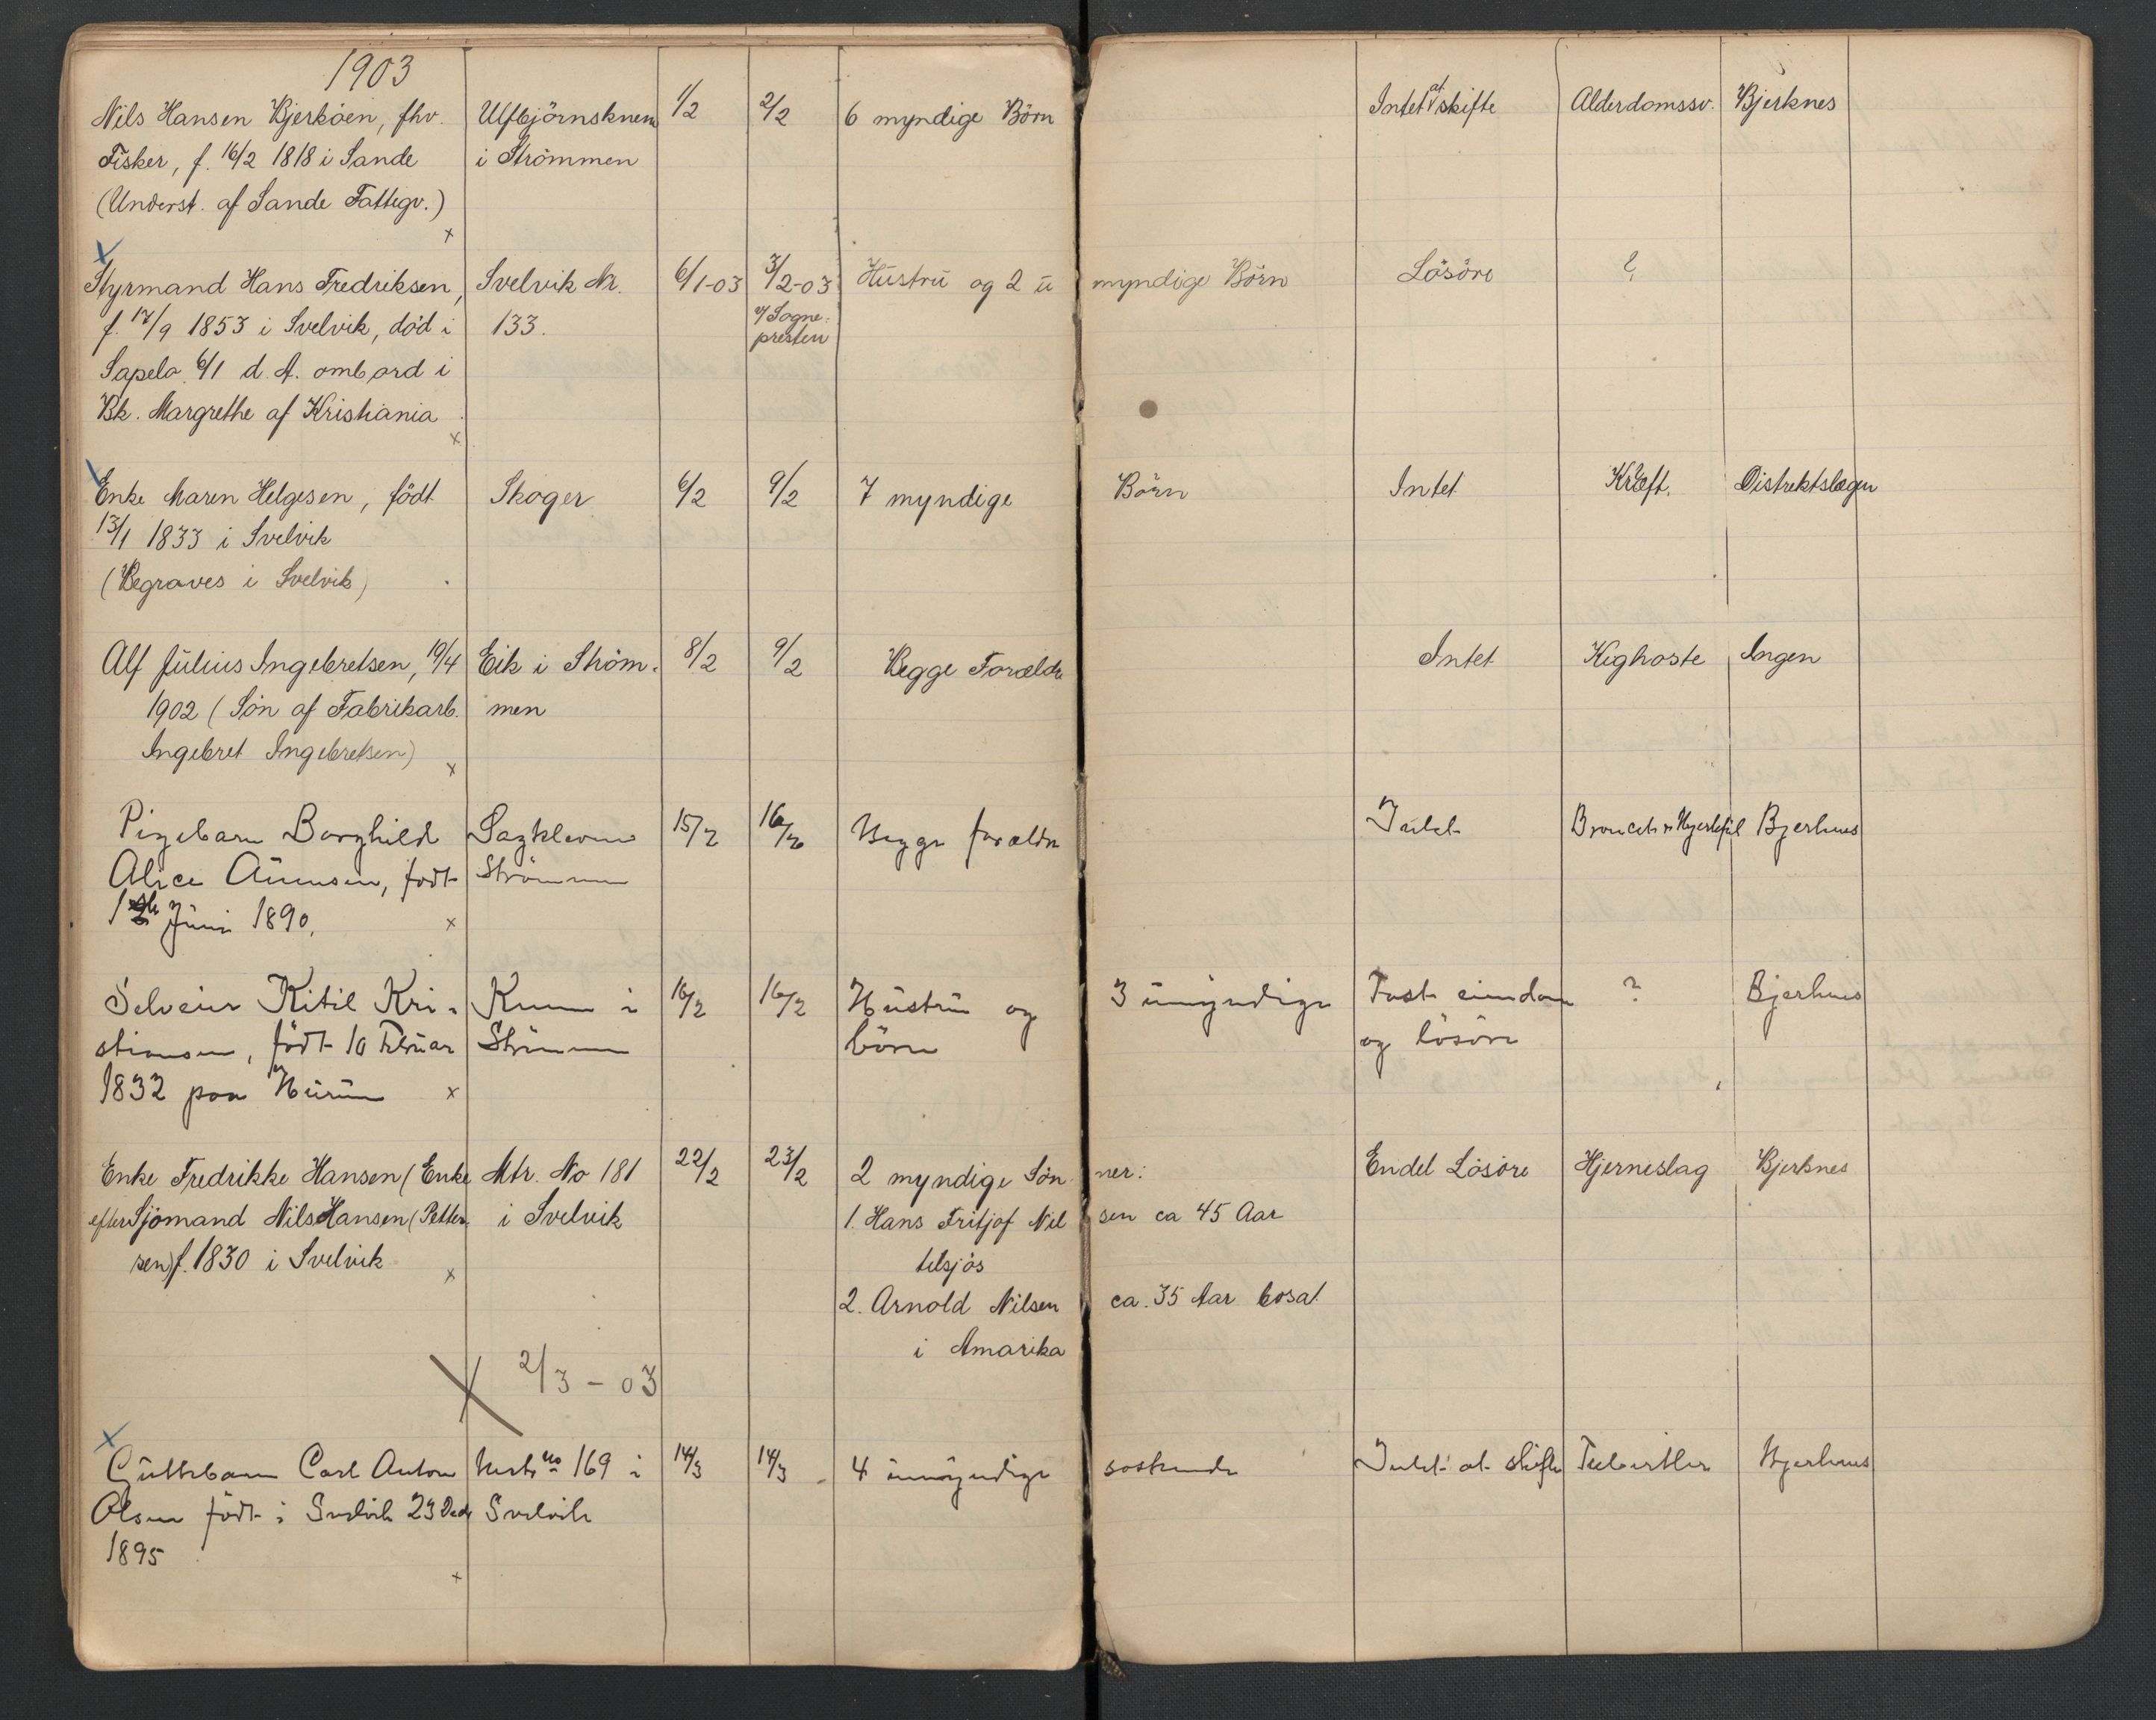 1903
Nils Hansen Bjerköen, fhv. Ulfbjörnsknem 1/2 2/2 6 myndige Börn Intet at skifte Alderdomssv. Bjerknes
Fisker, f. 16/2 1818 i Sande i Strömmen
(Underst. af Sande Fattigv.)
x
x
Styrmand Hans Fredriksen, Svelvik Nr. 6/1-03 3/2-03 Hustru og 2 umyndige Börn Lösöre ?
f. 17/9 1853 i Svelvik, död i 133. v/ Sogne-
Sapelo 6/1 d. A. ombord i presten
Bk. Margrethe af Kristiania
x
Enke Maren Helgesen, födt Skoger 6/2 9/2 7 myndige Börn Intet Kræft. Distriktslægen
13/1 1833 i Svelvik
(Begraves i Svelvik)
Alf Julius Ingebretsen, 19/4 Eik i Ström- 8/2 9/2 Begge Forældre Intet Kighoste Ingen
1902 (Sön af Fabrikarb. men
Ingebret Ingebretsen)
x
Pigebarn Borghild Sagkleven 15/2 16/2 Begge forældre Intet Bjerknes
Alice födt Strömmen
Juni 1890.
x
Selveier Kitil Kri- i 16/2 16/2 Hustru og 3 umyndige Fast eiendom ? Bjerknes
stiansen, födt 10 Februar Strömmen börn og lösöre
1832 paa Hurum
x
Enke Fredrikke Hansen (Enke Mtr. No 181 22/2 23/2 2 myndige Sönner: Endel Lösöre Hjerneslag Bjerknes
efter Sjömand Nils Hansen (Petter- i Svelvik 1. Hans Fritjof Nilsen ca 45 Aar
sen) f. 1830 i Svelvik tilsjös
x
2. Arnold Nilsen ca. 35 Aar bosat
i Amarika
x 2/3 - 03
x
Guttebarn Carl Anton No 169 i 14/3 14/3 4 umyndige söskende Intet at skifte Bjerknes
Olsen födt i Svelvik 23 Decb Svelvik
1895
x